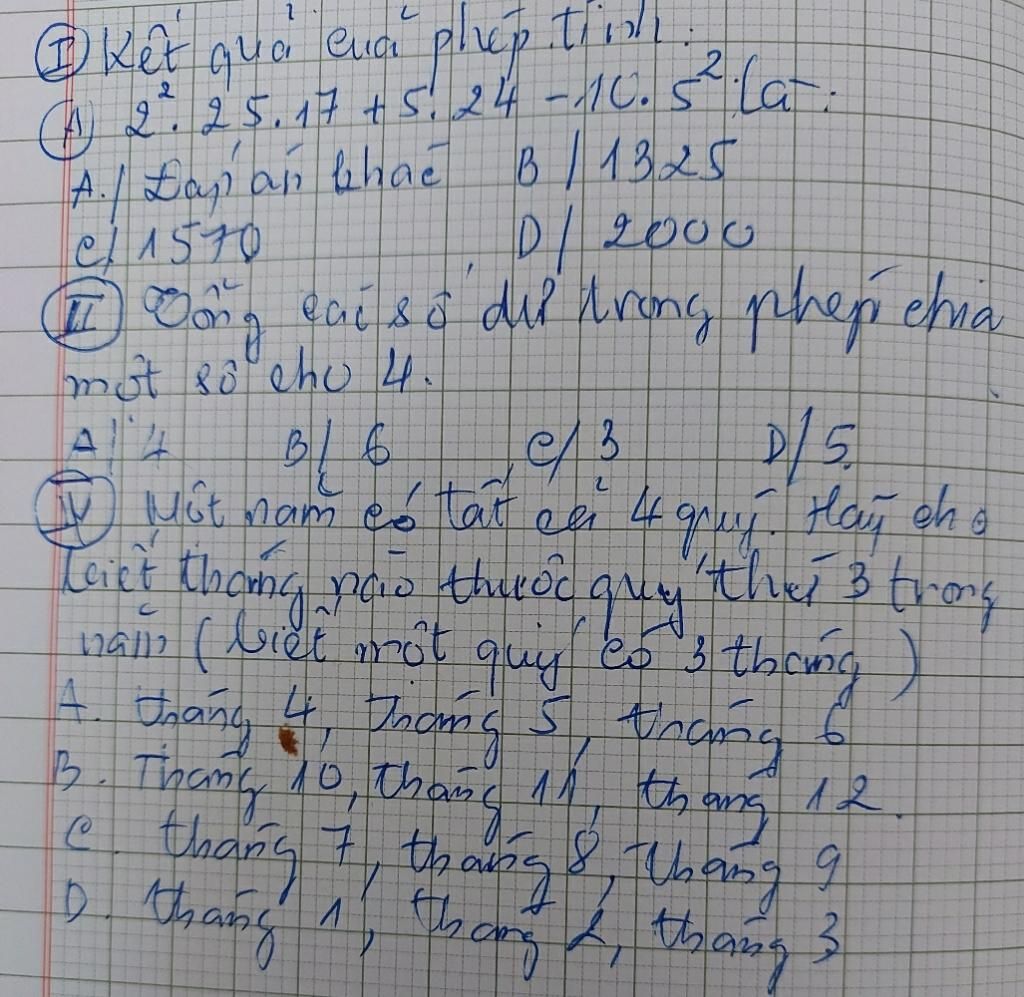 I Kết quả của phép tính:
A 2². 25.17 + 5. 24 - 10. 5² là:
A./ Đáp án khác B/ 1325
C/ 1570 D/ 2000
II Tổng các số dư trong phép chia
một số cho 4.
A/ 4 B/ 6 C/ 3 D/ 5.
IV Một năm có tất cả 4 quý. Hãy cho
biết tháng nào thuộc quý thứ 3 trong
năm (biết một quý có 3 tháng)
A. tháng 4, tháng 5, tháng 6
B. Tháng 10, tháng 11, tháng 12.
C. tháng 7, tháng 8, tháng 9
D. tháng 1, tháng 2, tháng 3